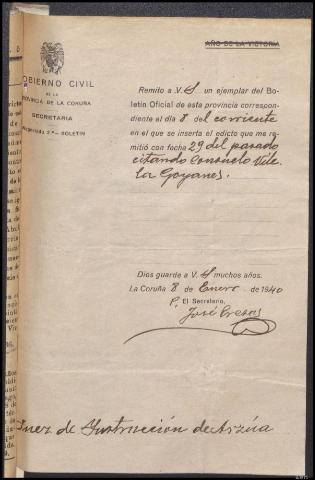 AÑO DE LA VICTORIA
GOBIERNO CIVIL
DE LA
PROVINCIA DE LA CORUÑA
SECRETARIA
BOLETIN
Remito a V. S un ejemplar del Bo-
letin Oficial de esta provincia correspon-
diente al día 8 del corriente
en el que se inserta el edicto que me re-
mitió con fecha 29 del pasado
citando Consuelo Vile
la Goyanes.
Dios guarde a V. S muchos años.
La Coruña 8 de Enero de 1940
P. El Secretario,
José
Juez de Ynstrucción de Arzúa